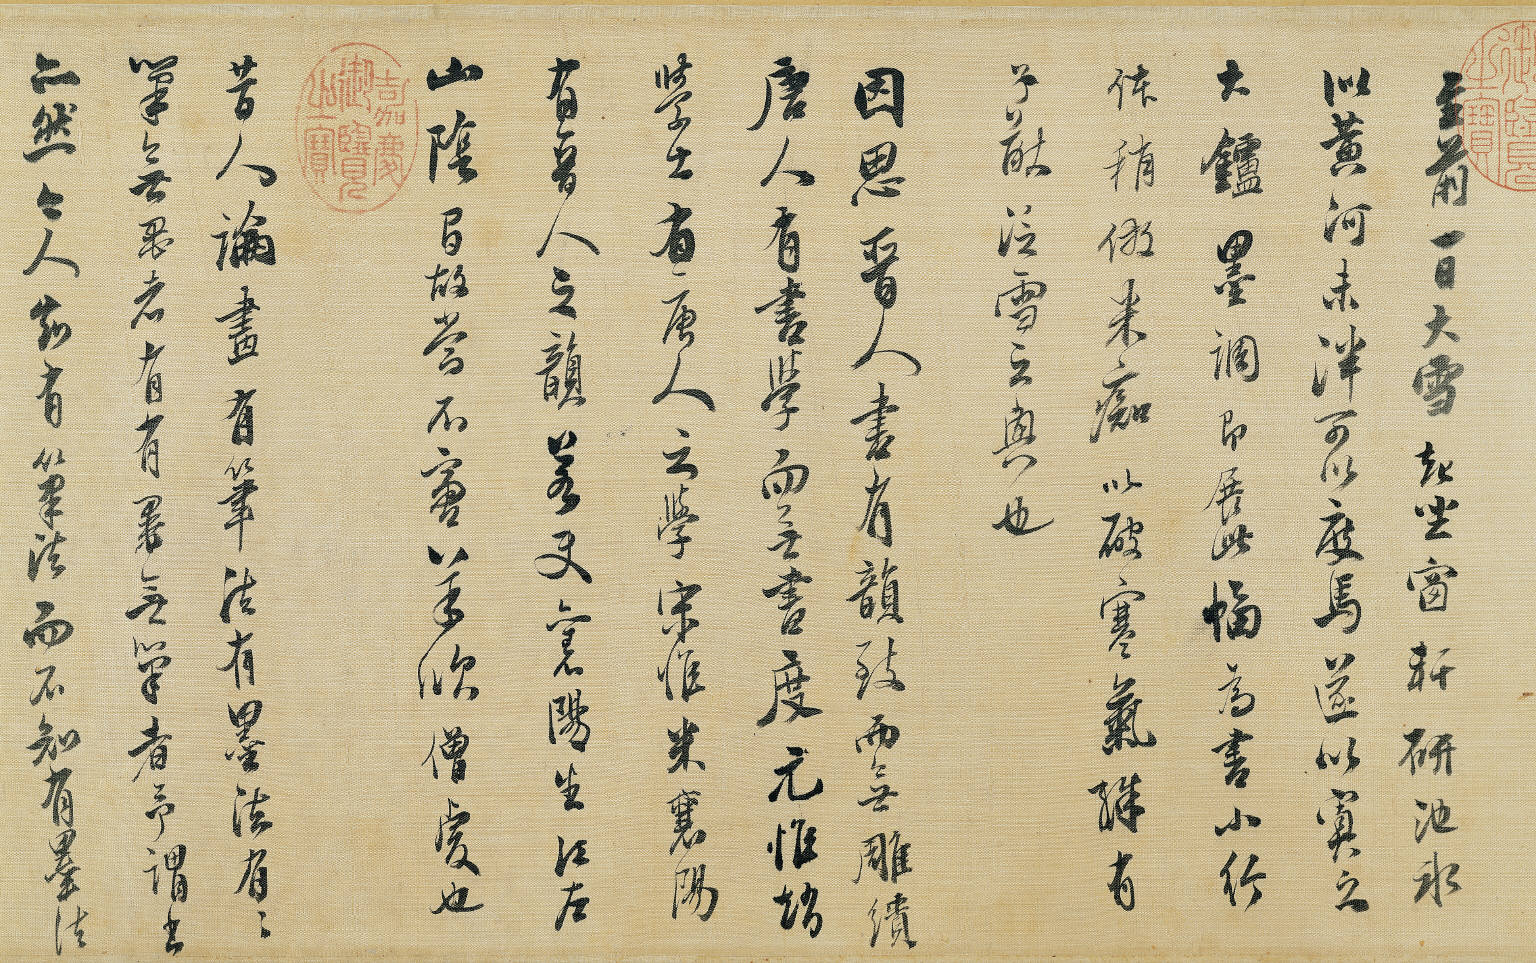 至前一日大雪起坐窗軒研池冰
似黃河未泮可以度馬遂以寘之
大鑪墨調即展此幅為書小行
体稍倣米癡以破寒氣殊有
予猷泛雪之興也
因思晉人書有韻致而無雕繢
唐人有書學而無書度元惟趙
學士有唐人之學宋惟米襄陽
有晉人之韻若更襄陽生江左
山陰間故當不審作羊欣僧虔也
昔人論畫有筆法有墨法有有
筆無墨者有有墨無筆者予謂書
亦然今人知有筆法而不知有墨法
嘉慶御覽之寶